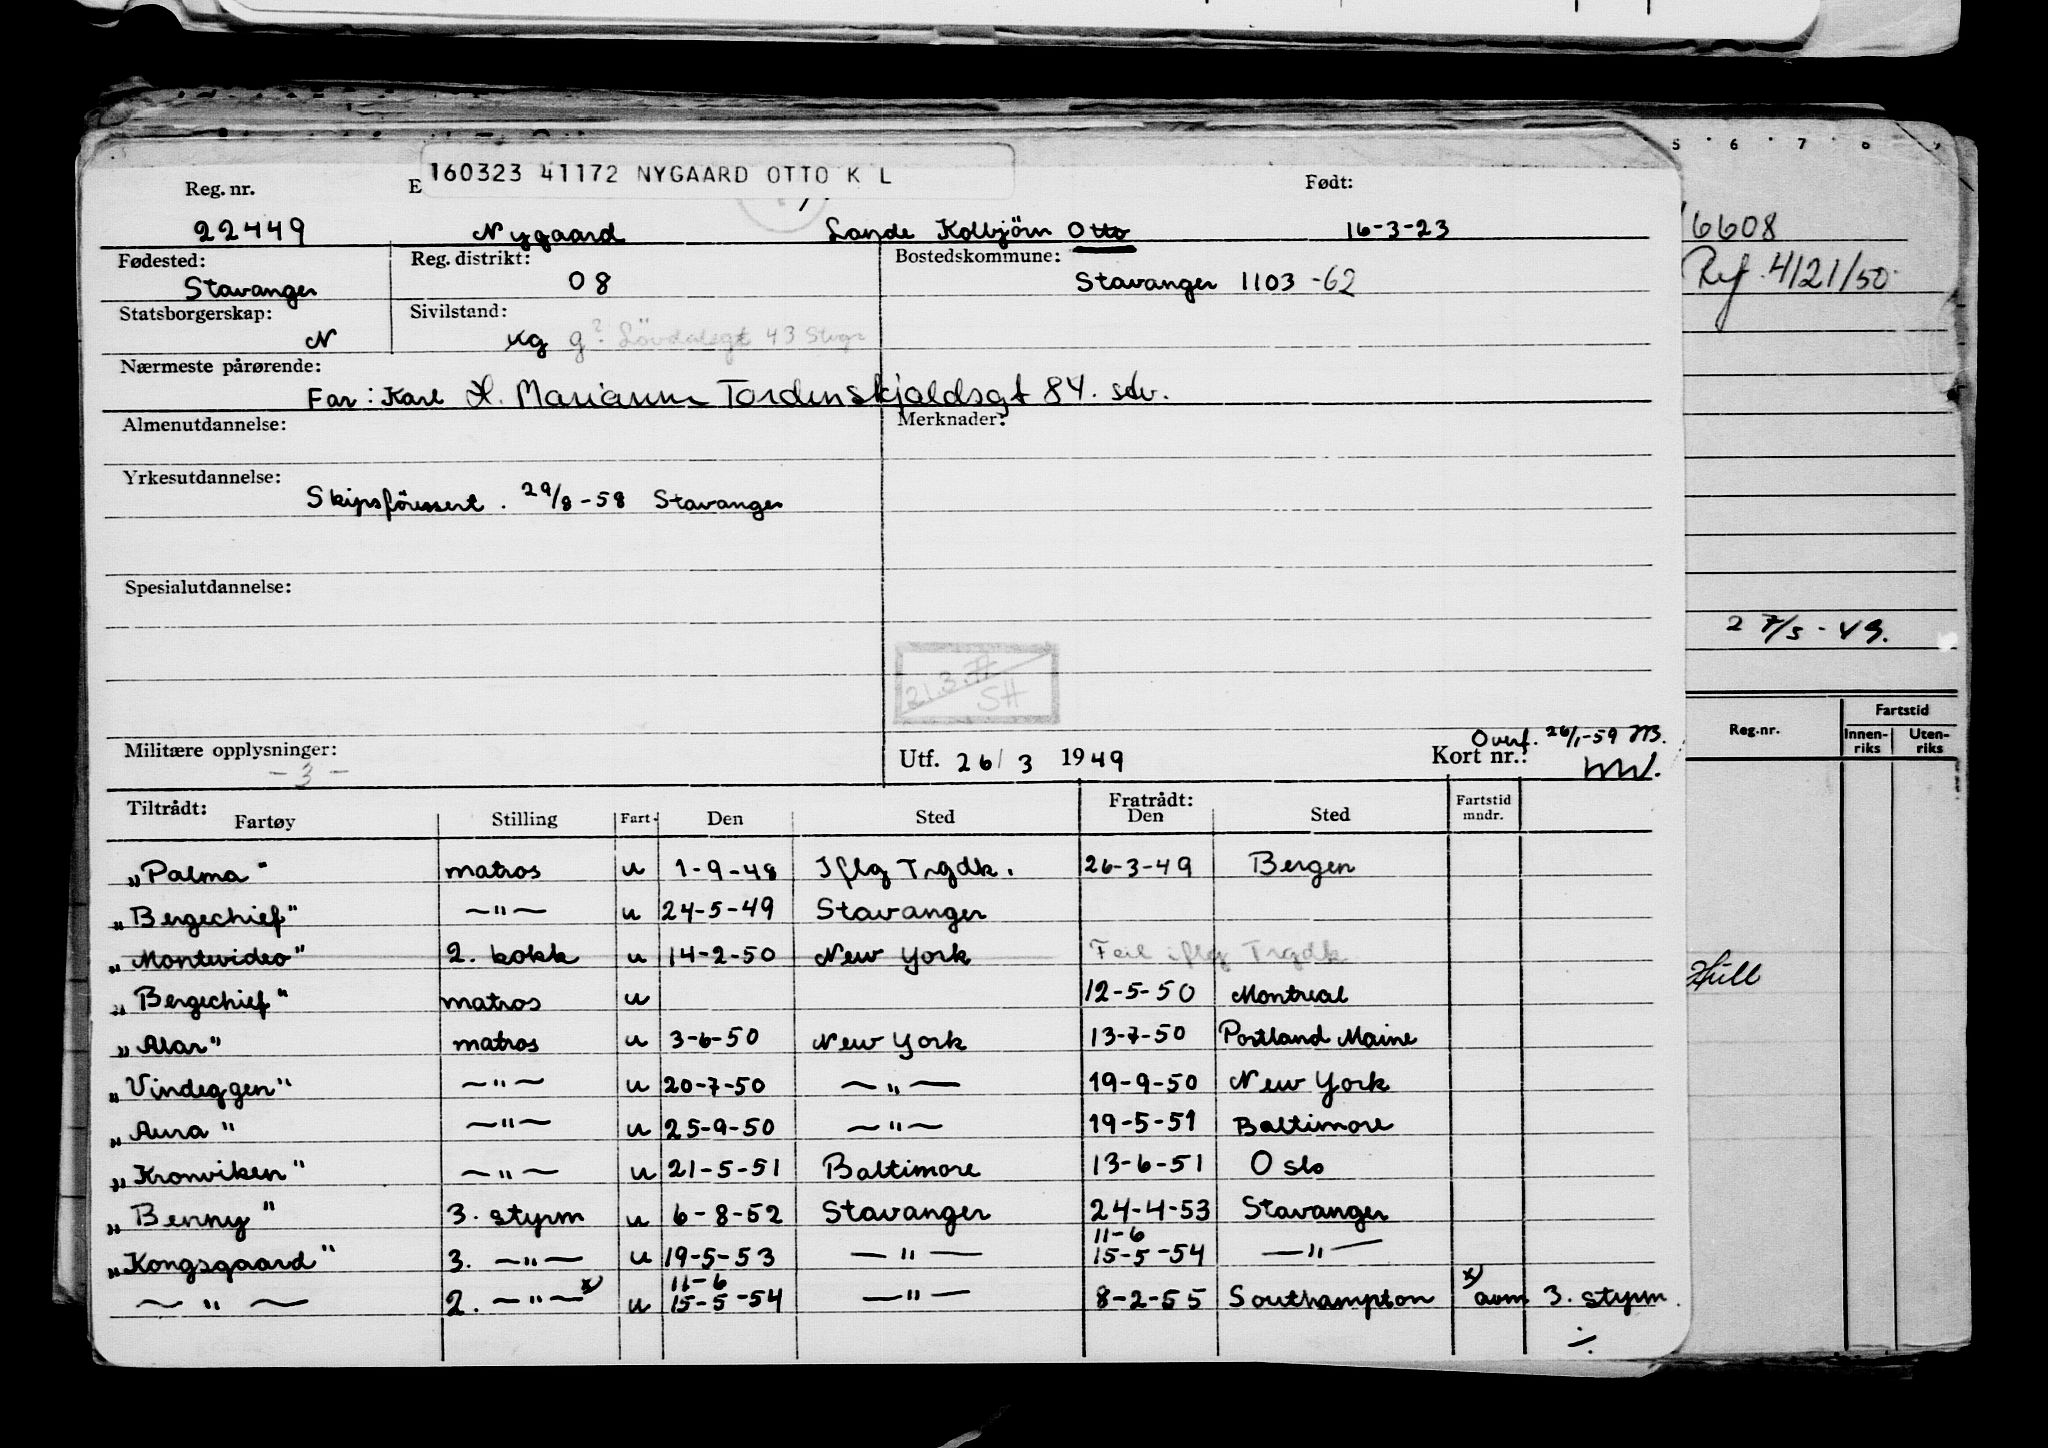 160323 41172 NYGAARD OTTO K L
Reg. nr. E Født:
22449 Nygaard Lande Kolbjörn Otto 16-3-23
Fødested: Reg. distrikt: Bostedskommune:
Stavanger 08 Stavanger 1103 -62
Statsborgerskap: Sivilstand:
N ug g? Lövdalsgt 43 Stvgr
Nærmeste pårørende:
Far: Karl H. Marianne Tordenskjoldsgt 84. sdv.
Almenutdannelse: Merknader:
Yrkesutdannelse:
Skipsförersert. 29/8-58 Stavanger
Spesialutdannelse:
21.3.77
SH
Overf. 26/1-59
Militære opplysninger: Utf. 26/3 1949 Kort nr.:
-3-
Tiltrådt: Fratrådt: Fartstid
Fartøy Stilling Fart. Den Sted Den Sted mndr.
„Palma" matros u 1-9-48 Iflg Trgdk. 26-3-49 Bergen
„Bergechief" —"— u 24-5-49 Stavanger
„Montevideo" 2. kokk u 14-2-50 New York Feil iflg Trgdk
„Bergechief" matros u 12-5-50 Montreal
„Alar" matros u 3-6-50 New York 13-7-50 Portland Maine
„Vindeggen" —"— u 20-7-50 —"— 19-9-50 New York
„Aura" —"— u 25-9-50 —"— 19-5-51 Baltimore
„Kronviken" —"— u 21-5-51 Baltimore 13-6-51 Oslo
„Benny" 3. styrm u 6-8-52 Stavanger 24-4-53 Stavanger
11-6
„Kongsgaard" 3. —"— u 19-5-53 —"— 15-5-54 —"—
11-6
—"— 2. —"— x) u 15-5-54 —"— 8-2-55 Southampton x) avm 3. styrm.
5 6 7 8
6608
Ref. 4121/50
27/5-49.
Reg.nr. Fartstid
Innen-riks Uten-riks
Hull